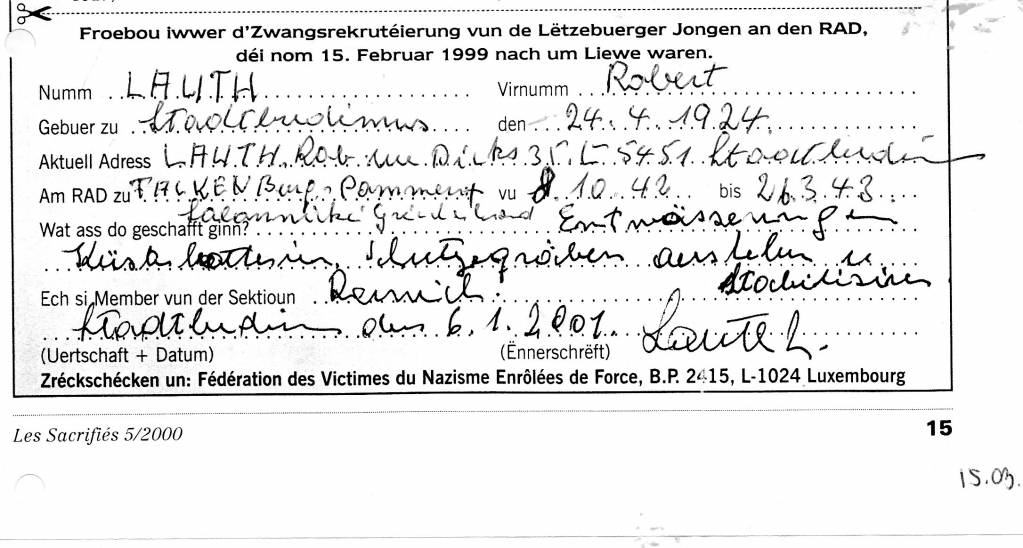 Froebou iwwer d'Zwangsrekrutéierung vun de Lëtzebuerger Jongen an den RAD,
déi nom 15. Februar 1999 nach um Liewe waren.
Numm LAUTH Virnumm Robert
Gebuer zu Stadtbredimus den 24. 4. 1924
Aktuell Adress LAUTH Rob. rue Dicks 35 L-5451 Stadtbredim
Am RAD zu FALKENBurg - Pammern vu 8.10.42 bis 26.3.43
Wat ass do geschafft ginn? Entwässerungen
Schutzgräben u
Ech si Member vun der Sektioun Remich
Stadtbredim den 6.1.2001. Lauth
(Uertschaft + Datum) (Ënnerschrëft)
Zréckschécken un: Fédération des Victimes du Nazisme Enrôlées de Force, B.P. 2415, L-1024 Luxembourg
Les Sacrifiés 5/2000 15
15.03.